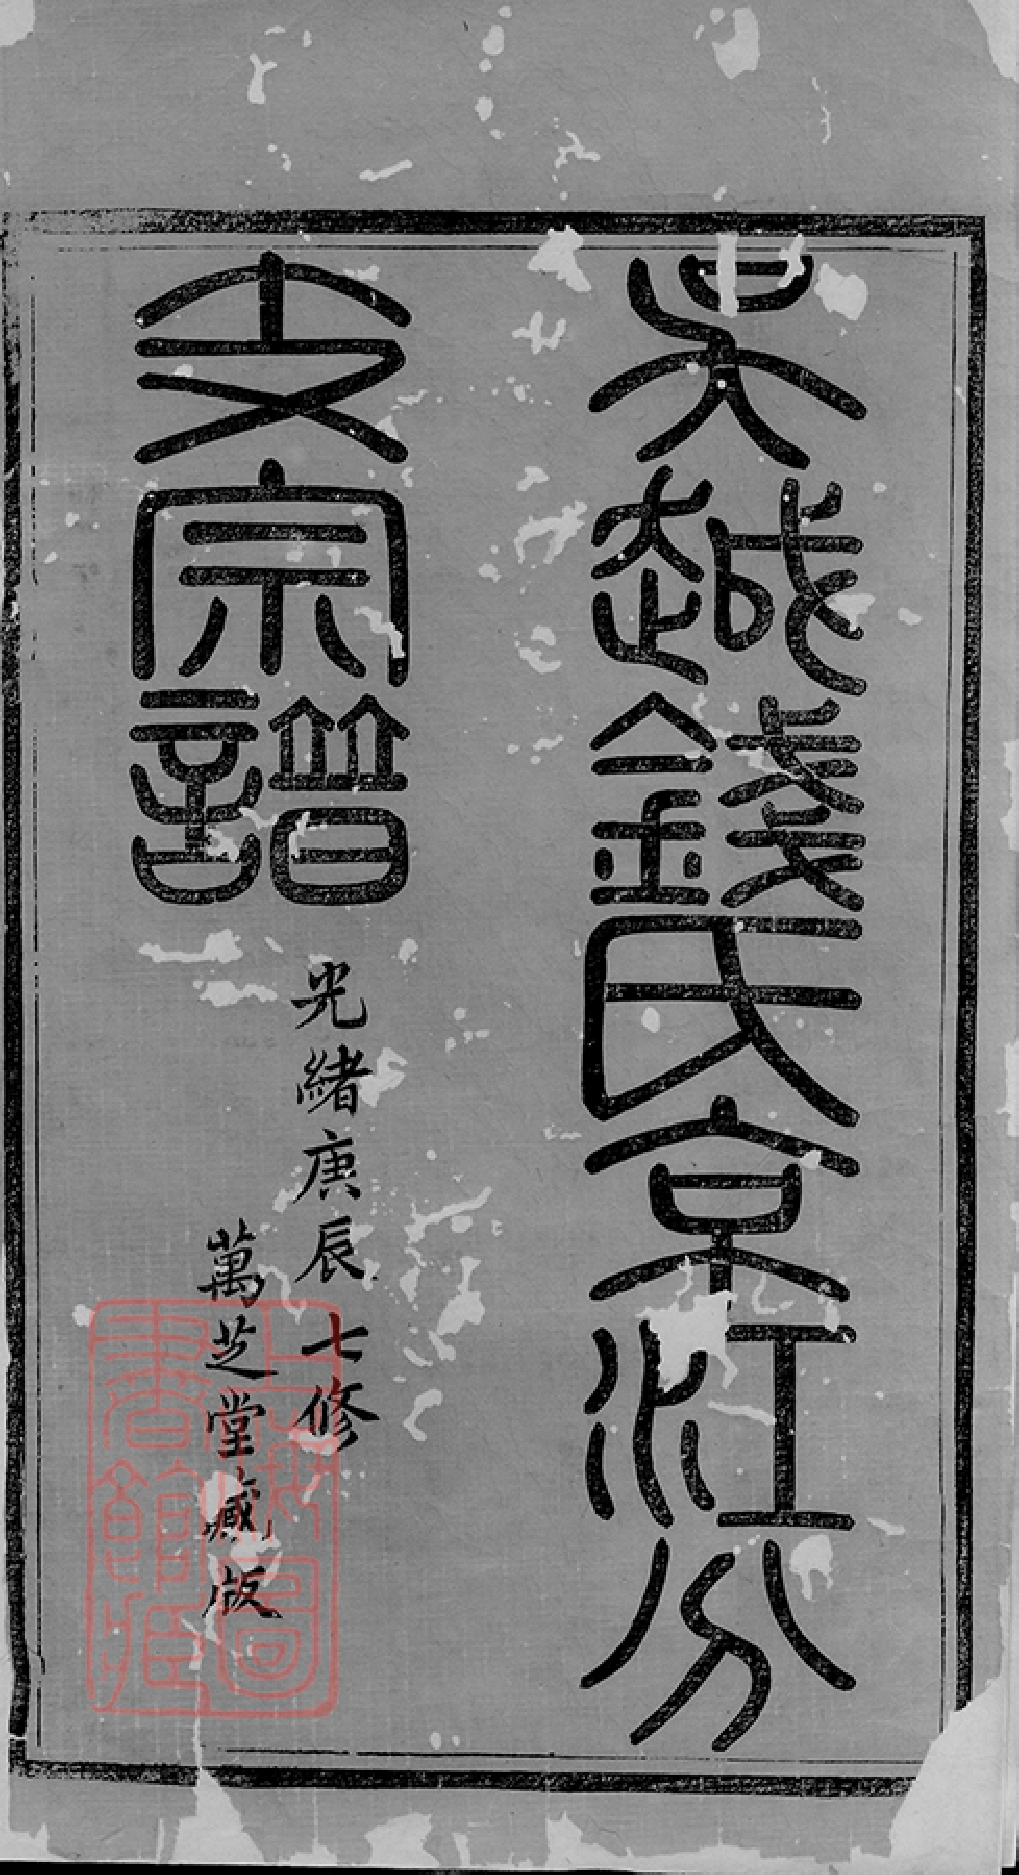 吳越錢氏京江分
支宗譜
光緒庚辰七修
萬芝堂藏版
上海圖
書館藏